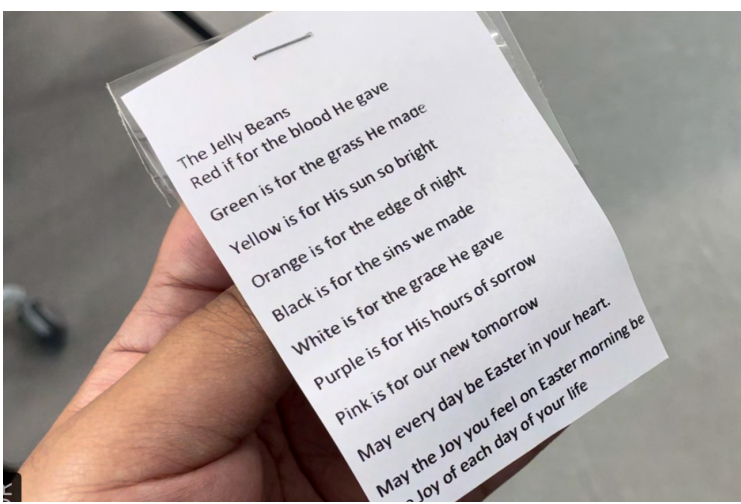 The Jelly Beans
Red if for the blood He gave
Green is for the grass He made
Yellow is for His sun so bright
Orange is for the edge of night
Black is for the sins we made
White is for the grace He gave
Purple is for His hours of sorrow
Pink is for our new tomorrow
May every day be Easter in your heart.
May the Joy you feel on Easter morning be
Joy of each day of your life